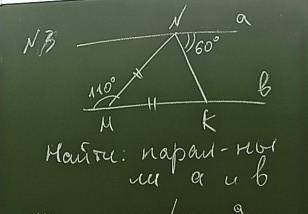 N3
N
a
110°
60°
в
М
К
Найти: парал-ны
ли а и в